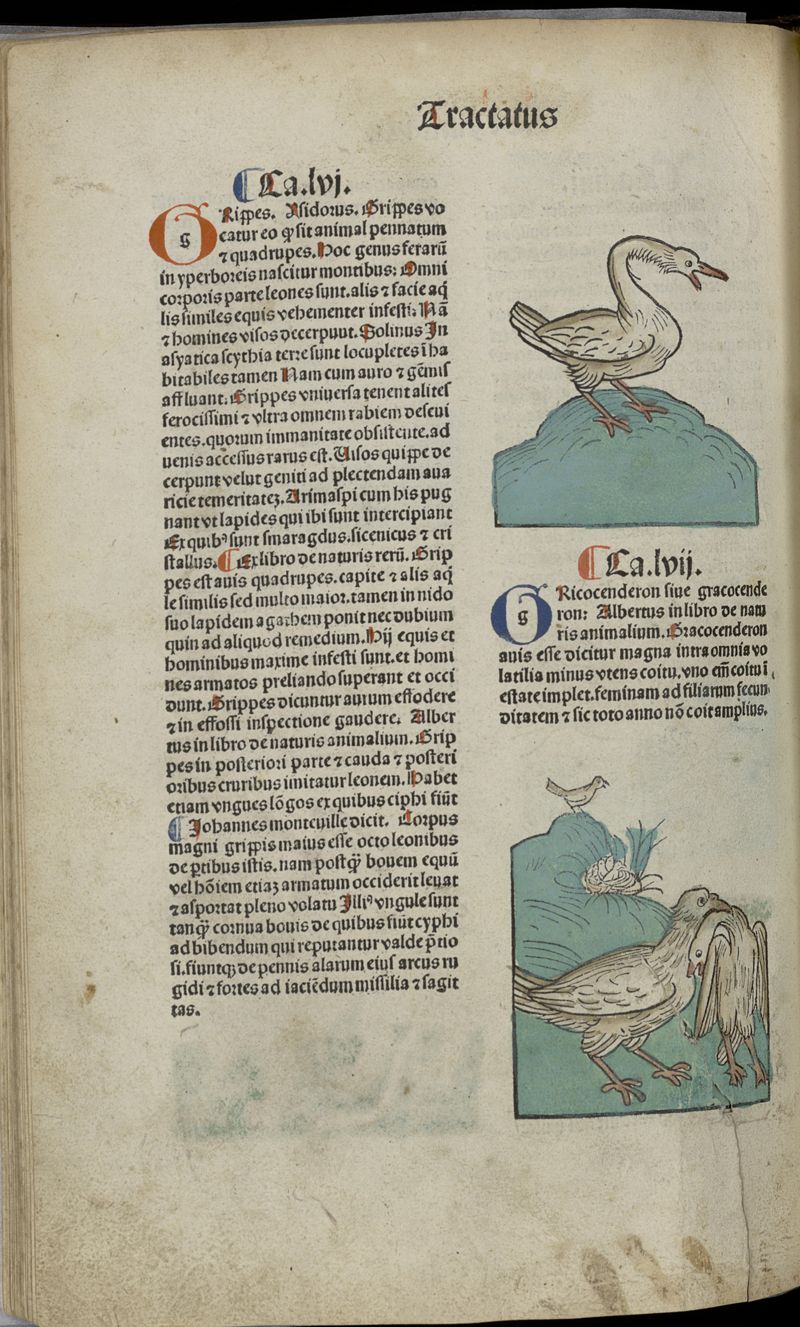 Tractatus
¶Ca.lvj.
GRippes. Isidorus. Grippes vo
catur eo ꝙ sit animal pennatum
⁊ quadrupes. Hoc genus ferarū
in yperboreis nascitur montibus: Omni
corporis parte leones sunt. alis ⁊ facie aq̄
lis similes equis vehementer infesti. Nā
⁊ homines visos decerpunt. Solinus In
asyatica scythia terre sunt locupletes īha
bitabiles tamen Nam cum auro ⁊ gēmis
affluant. Grippes vniuersa tenent alites
ferocissimi ⁊ vltra omnem rabiem deseui
entes. quorum immanitate obsistente. ad
uenis accessus rarus est. Uisos quippe de
cerpunt velut geniti ad plectendam aua
ricie temeritatez. Arimaspi cum his pug
nant vt lapides qui ibi sunt intercipiant
Ex quibꝰ sunt smaragdus. sicenicus ⁊ cri
stallus. ¶Ex libro de naturis rerū. Grip
pes est auis quadrupes. capite ⁊ alis aq̄
le similis sed multo maior. tamen in nido
suo lapidem agathem ponit nec dubium
quin ad aliquod remedium. Hij equis et
hominibus maxime infesti sunt. et homi
nes armatos preliando superant et occi
dunt. Grippes dicuntur aurum effodere
⁊ in effossi inspectione gaudere. Alber
tus in libro de naturis animalium. Grip
pes in posteriori parte ⁊ cauda ⁊ posteri
oribus cruribus imitatur leonem. Habet
etiam vngues lōgos ex quibus ciphi fiūt
¶Johannes monteuille dicit. Corpus
magni grippis maius esse octo leonibus
de ꝑtibus istis. nam postꝙ̄ bouem equū
vel hōiem etiaz armatum occiderit leuat
⁊ asportat pleno volatu Illiꝰ vngule sunt
tanꝙ̄ cornua bouis de quibus fiūt cyphi
ad bibendum qui reputantur valde p̄tio
si. fiuntqꝫ de pennis alarum eius arcus ru
gidi ⁊ fortes ad iaciēdum missilia ⁊ sagit
tas.
¶Ca.lvij.
GRicocenderon siue gracocende
ron: Albertus in libro de natu
ris animalium. Gracocenderon
auis esse dicitur magna intra omnia vo
latilia minus vtens coitu. vno em̄ coitu ī
estate implet. feminam ad filiarum fecun
ditatem ⁊ sic toto anno nō coit amplius.